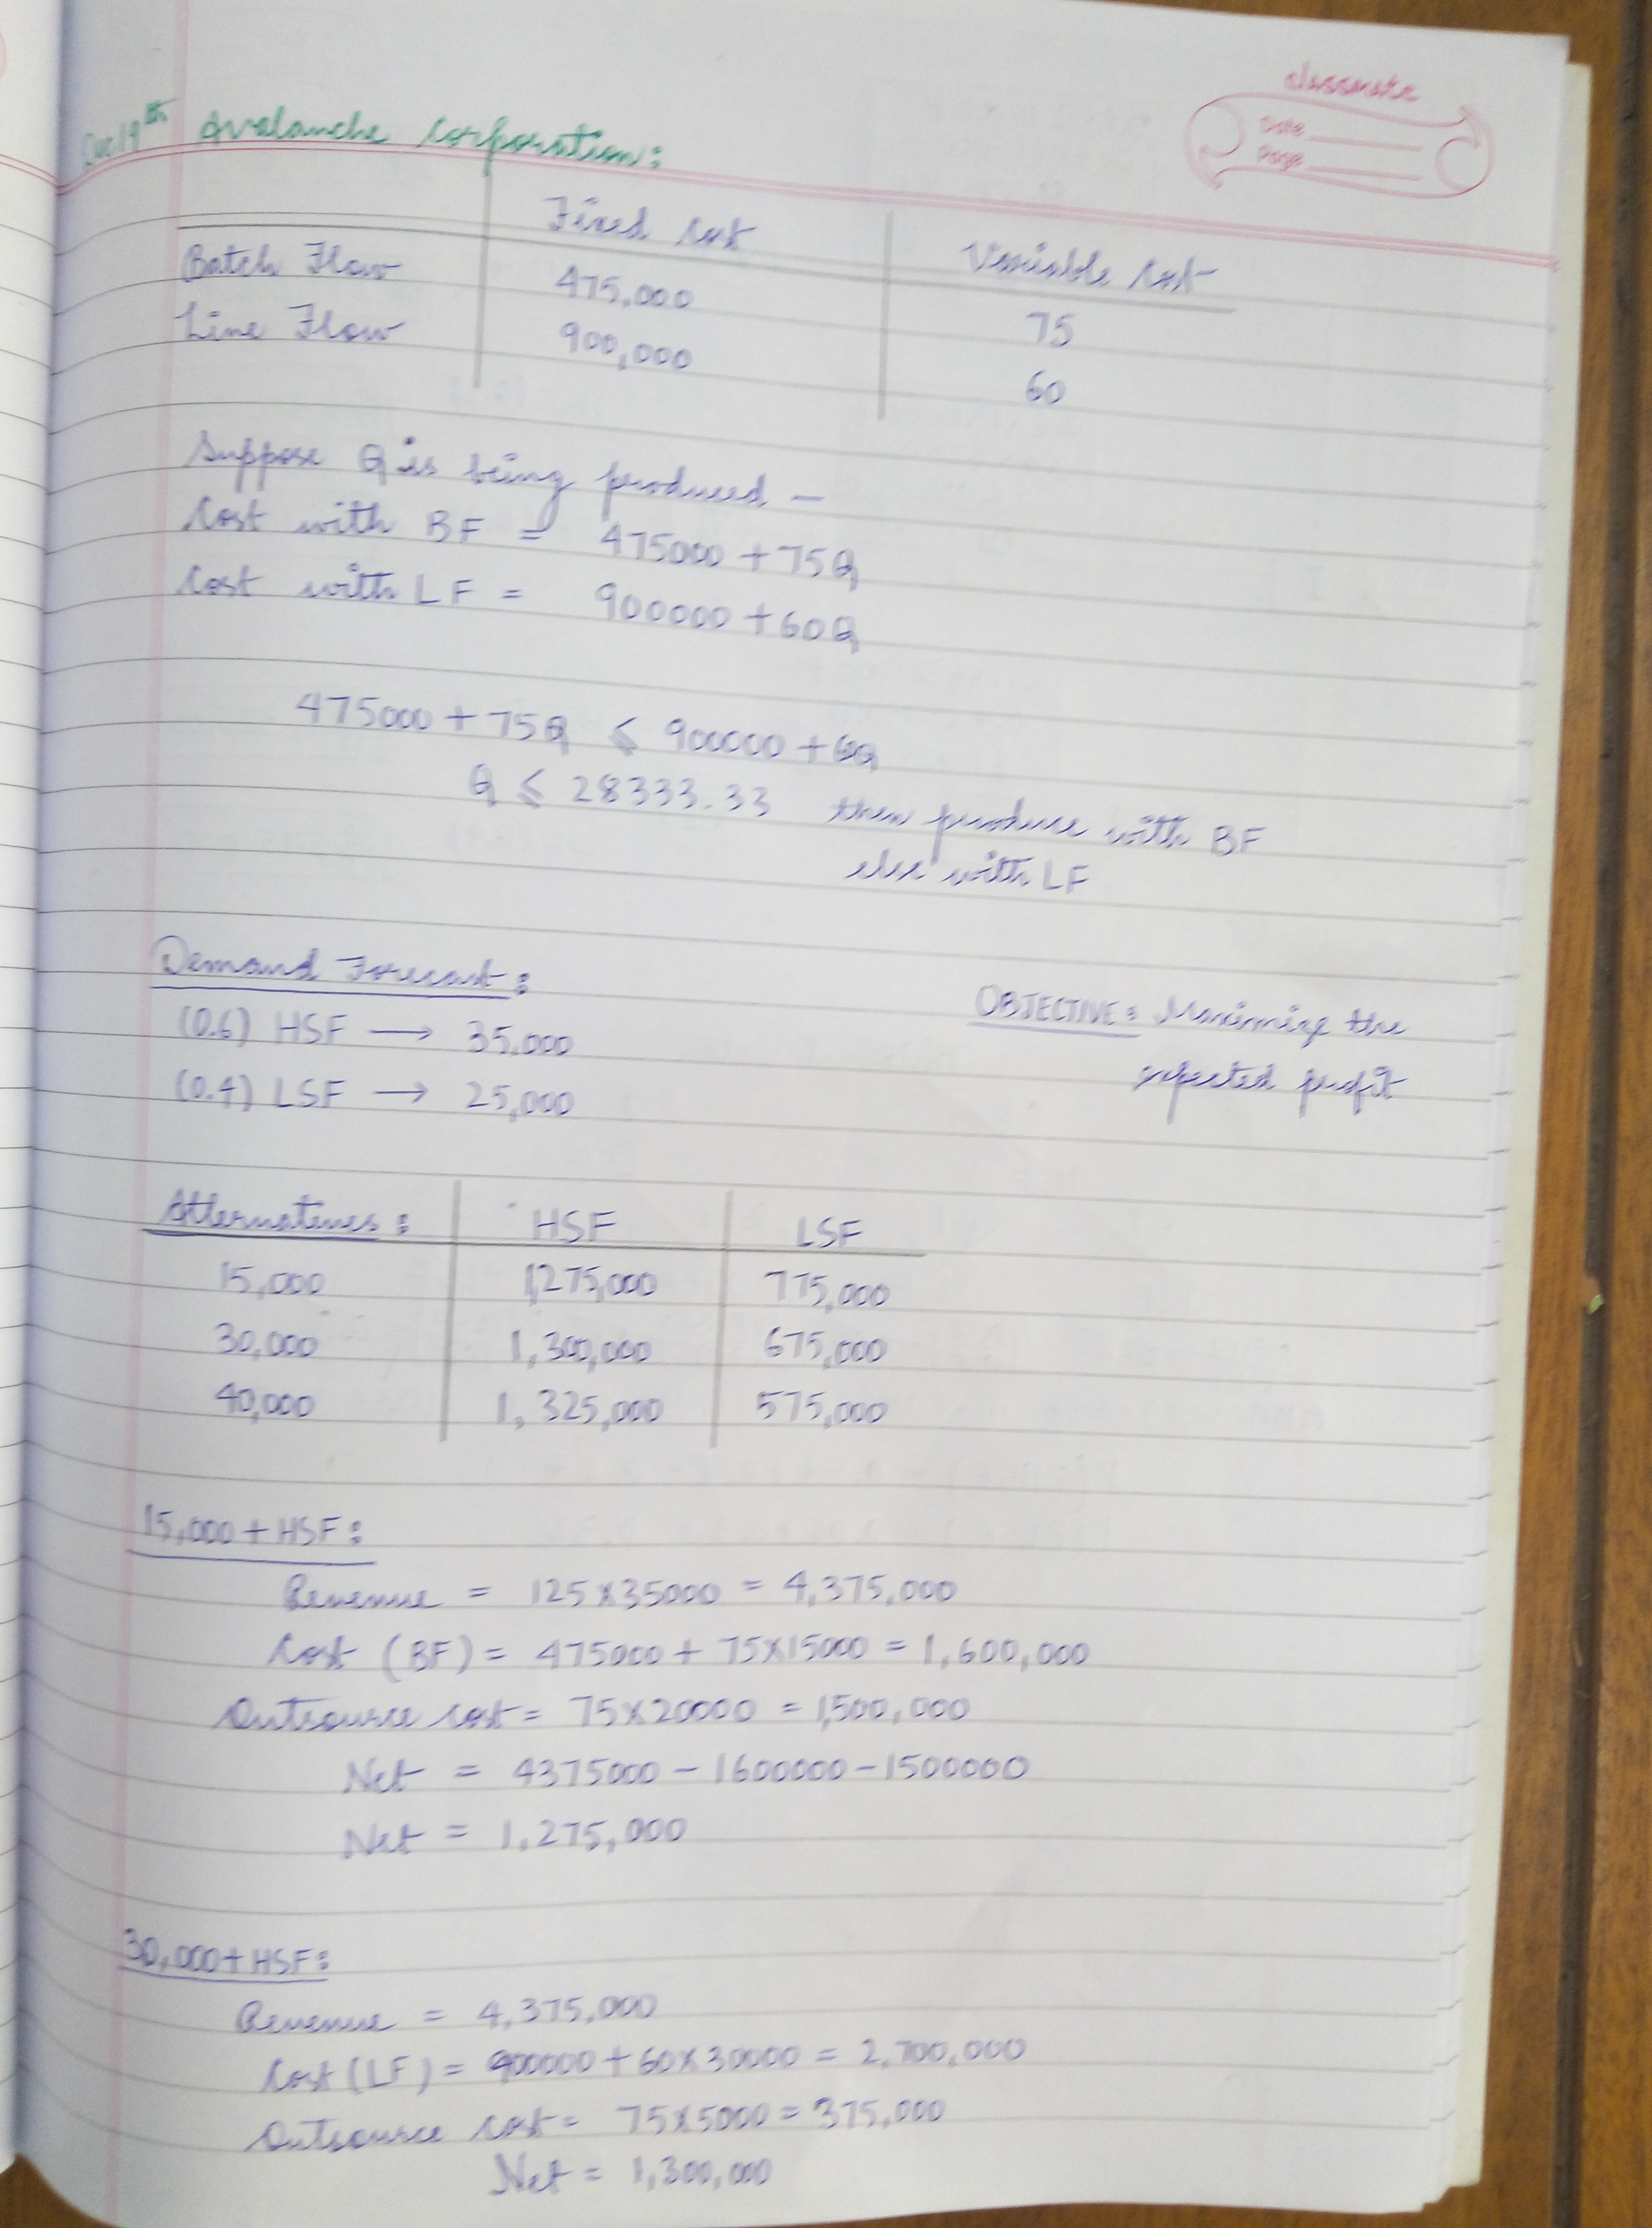 classmate
Date
Page
Dec 19th Avalanche Corporation:
Fixed Cost Variable Cost
Batch Flow 475,000 75
Line Flow 900,000 60
Suppose Q is being produced –
Cost with BF = 475000 + 75Q
Cost with LF = 900000 + 60Q
475000 + 75Q ≤ 900000 + 60Q
Q ≤ 28333.33 then produce with BF
else with LF
Demand Forecast:
(0.6) HSF → 35,000
(0.4) LSF → 25,000
OBJECTIVE: Maximize the
expected profit
Alternatives: HSF LSF
15,000 1,275,000 775,000
30,000 1,300,000 675,000
40,000 1,325,000 575,000
15,000 + HSF:
Revenue = 125 x 35000 = 4,375,000
Cost (BF) = 475000 + 75x15000 = 1,600,000
Outsource cost = 75 x 20000 = 1,500,000
Net = 4375000 - 1600000 - 1500000
Net = 1,275,000
30,000 + HSF:
Revenue = 4,375,000
Cost (LF) = 900000 + 60x30000 = 2,700,000
Outsource cost = 75x5000 = 375,000
Net = 1,300,000